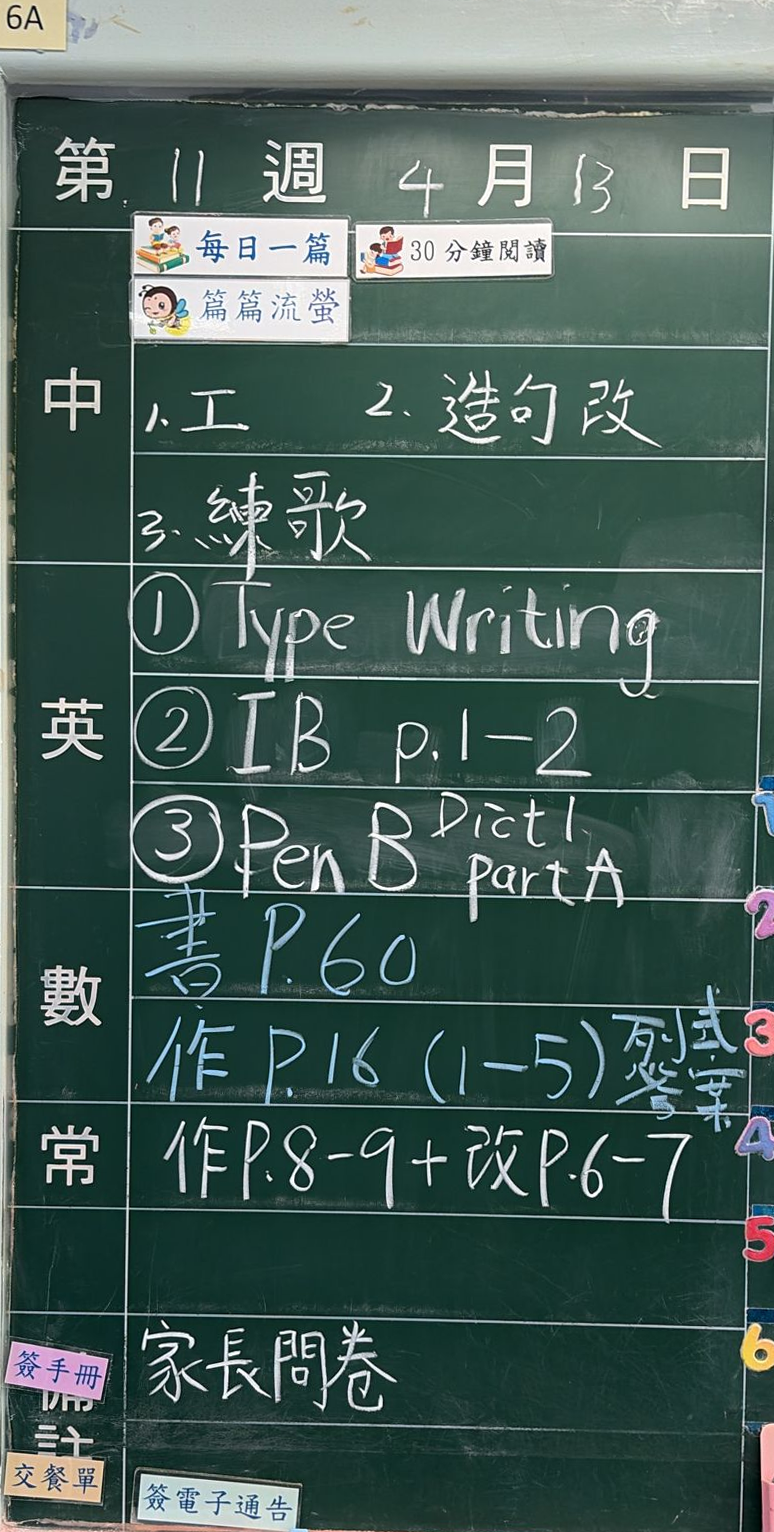 6A
第 11 週 4 月 13 日
每日一篇 30分鐘閱讀
篇篇流螢
中
1. 工 2. 造句改
3. 練歌
英
① Type Writing
② IB p.1-2
③ Pen B Dict 1 part A
數
書 P.60
作 P.16 (1-5) 列式答案
常
作P.8-9+改P.6-7
備註
家長問卷
簽手冊
交餐單
簽電子通告
1
2
3
4
5
6